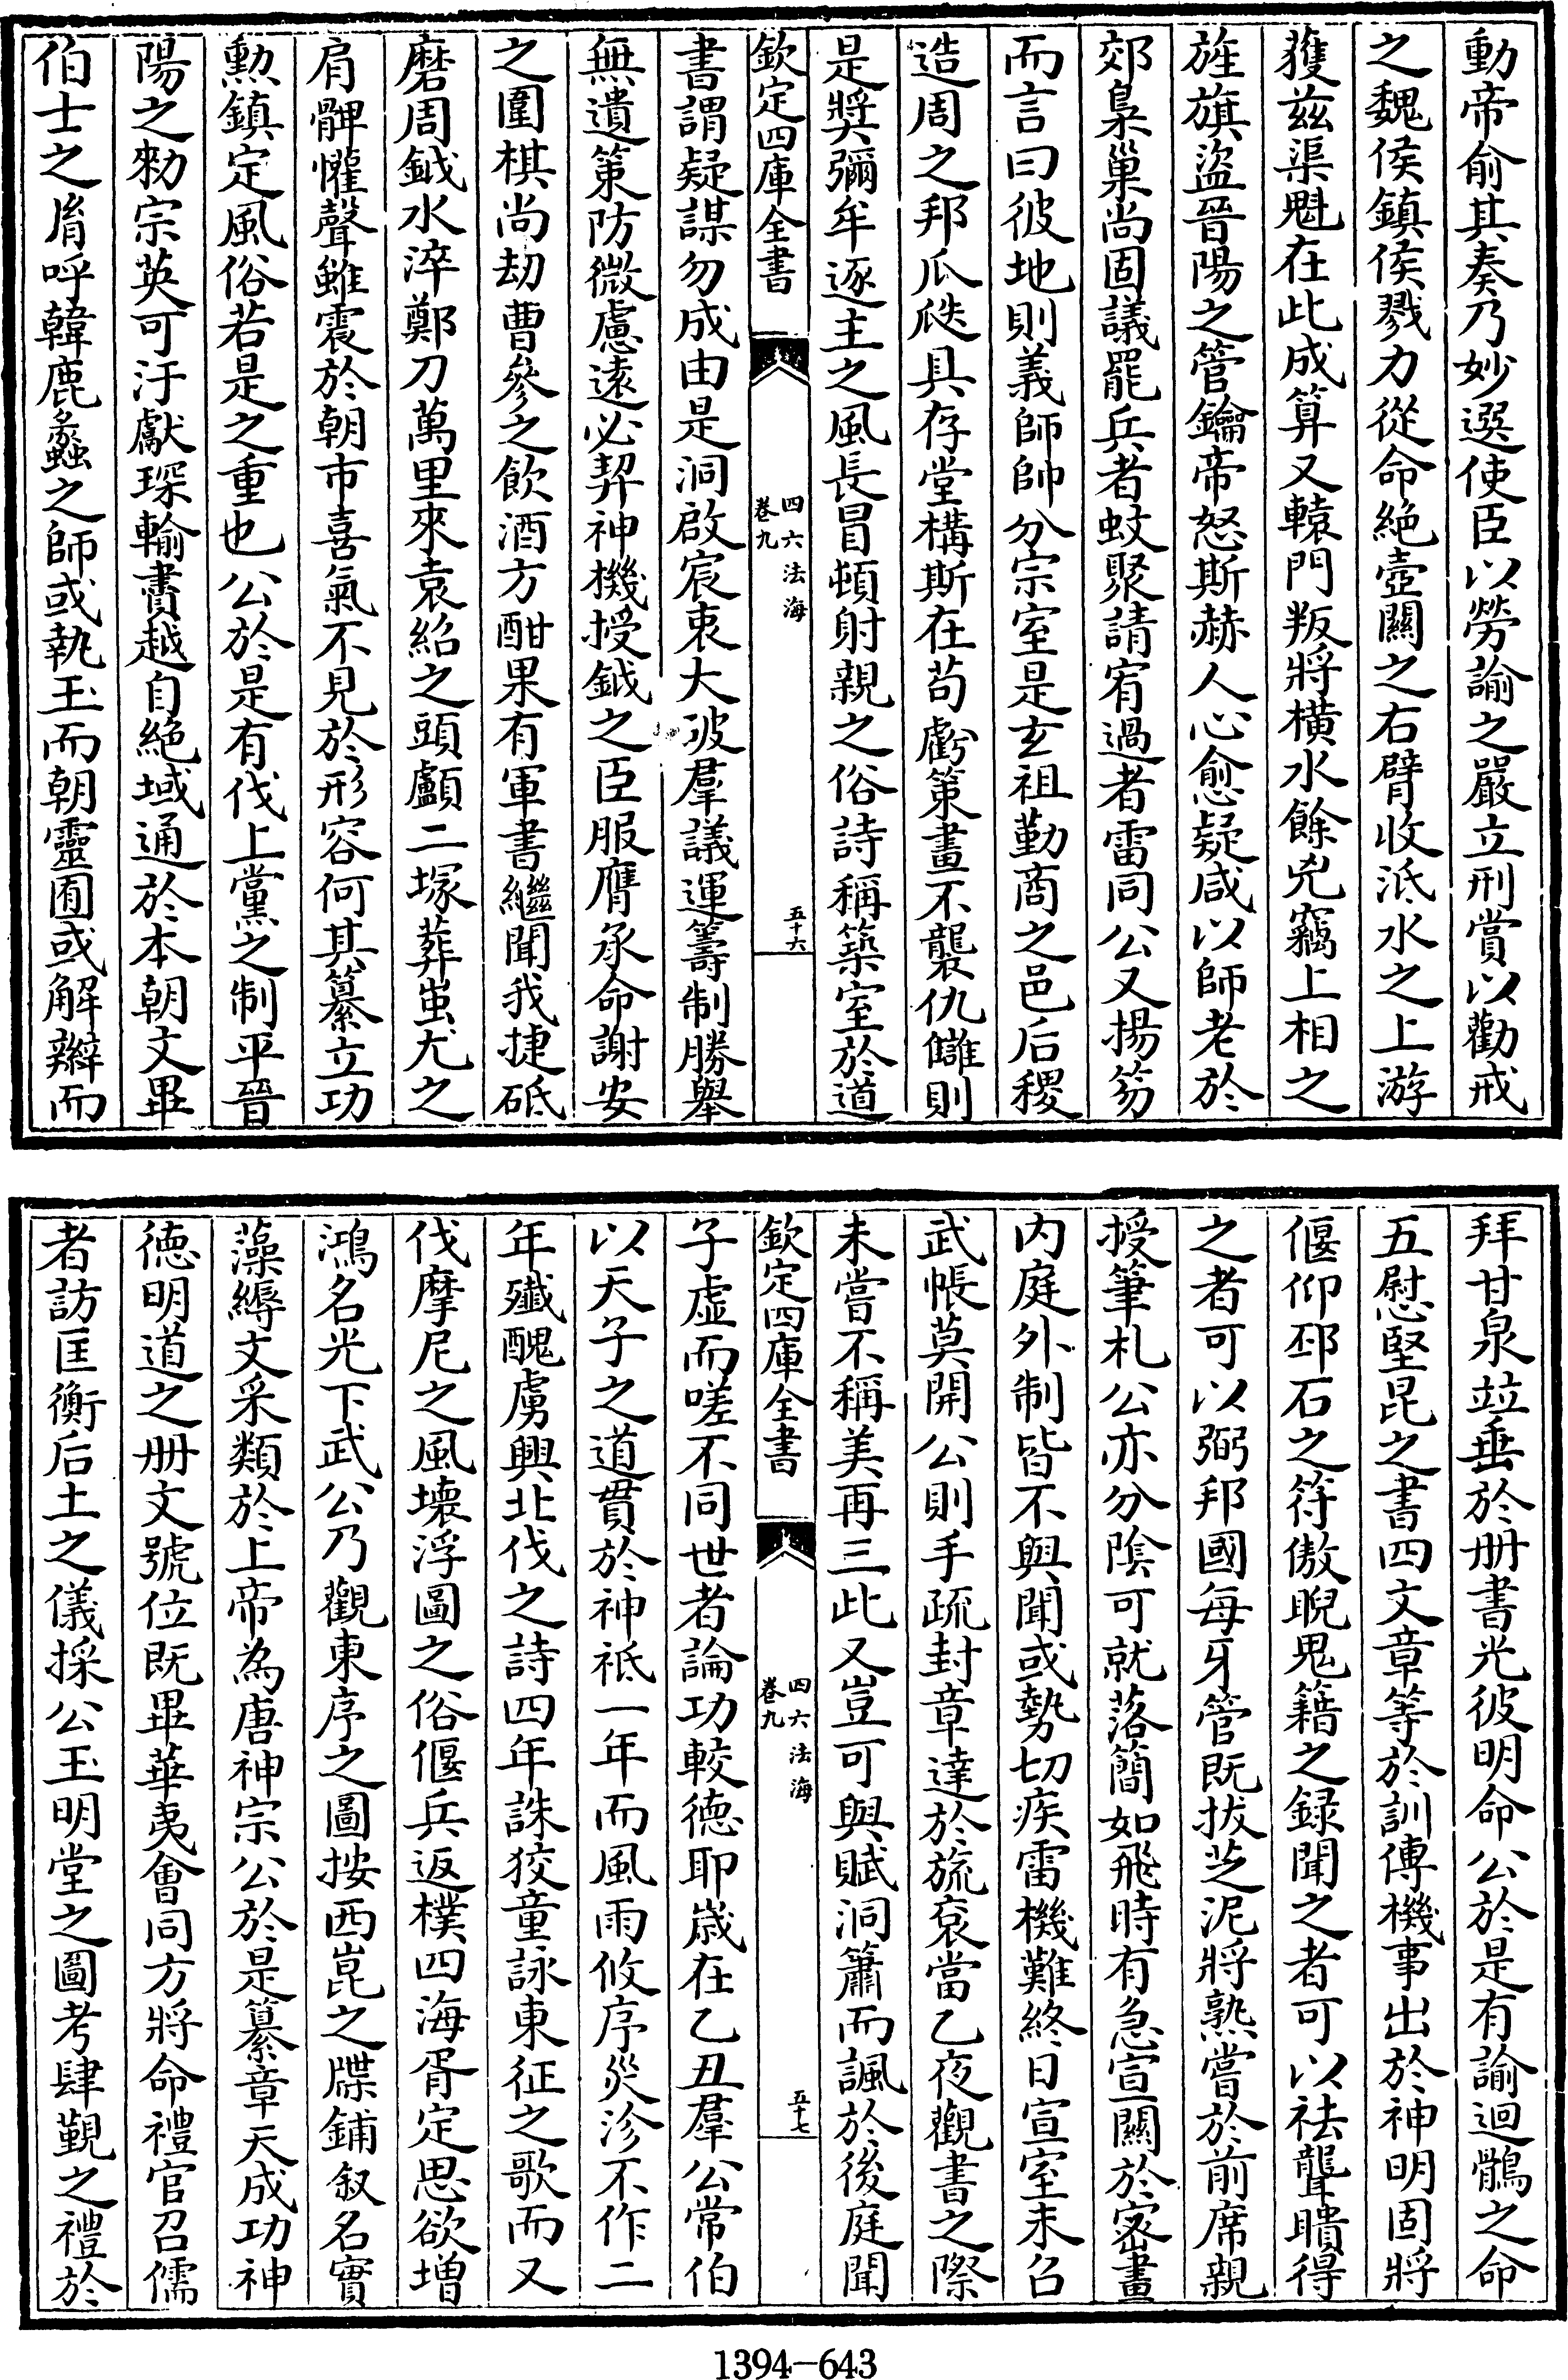 動帝俞其奏乃妙選使臣以勞諭之嚴立刑賞以勸戒
之魏侯鎮侯戮力從命絶壺關之右臂收泜水之上游
獲兹渠魁在此成算又轅門叛將横水餘兇竊上相之
旌旗盜晉陽之管鑰帝怒斯赫人心愈疑咸以師老於
郊梟巢尚固議罷兵者蚊聚請宥過者雷同公又揚笏
而言曰彼地則義師帥分宗室是玄祖勤商之邑后稷
造周之邦瓜瓞具存堂構斯在茍虧策畫不襲仇讎則
是奬彌牟逐主之風長冒頓射親之俗詩稱築室於道
欽定四庫全書
四六法海
卷九
五十六
書謂疑謀勿成由是洞啟宸衷大破羣議運籌制勝舉
無遺策防微慮遠必契神機授鉞之臣服膺承命謝安
之圍棋尚刼曹參之飲酒方酣果有軍書繼聞我捷砥
磨周鉞水淬鄭刀萬里來袁紹之頭顱二塚葬蚩尤之
肩髀懽聲雖震於朝市喜氣不見於形容何其纂立功
勲鎮定風俗若是之重也公於是有伐上黨之制平晉
陽之勑宗英可汙獻琛輸賮越自絶域通於本朝文畢
伯士之胄呼韓鹿蠡之師或執玉而朝靈囿或解辮而
拜甘泉竝垂於册書光彼明命公於是有諭迴鶻之命
五慰堅昆之書四文章等於訓傳機事出於神明固將
偃仰邳石之符傲睨鬼籍之録聞之者可以祛聾瞶得
之者可以弼邦國每牙管既拔芝泥將熟嘗於前席親
授筆札公亦分陰可就落簡如飛時有急宣關於密畫
内庭外制皆不與聞或勢切疾雷機難終日宣室未召
武帳莫開公則手疏封章達於旒衮當乙夜觀書之際
未嘗不稱美再三此又豈可與賦洞簫而諷於後庭聞
欽定四庫全書
四六法海
卷九
五十七
子虚而嗟不同世者論功較德耶歲在乙丑羣公常伯
以天子之道貫於神祇一年而風雨攸序災沴不作二
年殲醜虜興北伐之詩四年誅狡童詠東征之歌而又
伐摩尼之風壞浮圖之俗偃兵返樸四海胥定思欲增
鴻名光下武公乃觀東序之圖按西崑之牒鋪叙名實
藻縟文采類於上帝為唐神宗公於是纂章天成功神
德明道之册文號位既畢華夷會同方將命禮官召儒
者訪匡衡后土之儀採公玉明堂之圖考肆覲之禮於
1394—643